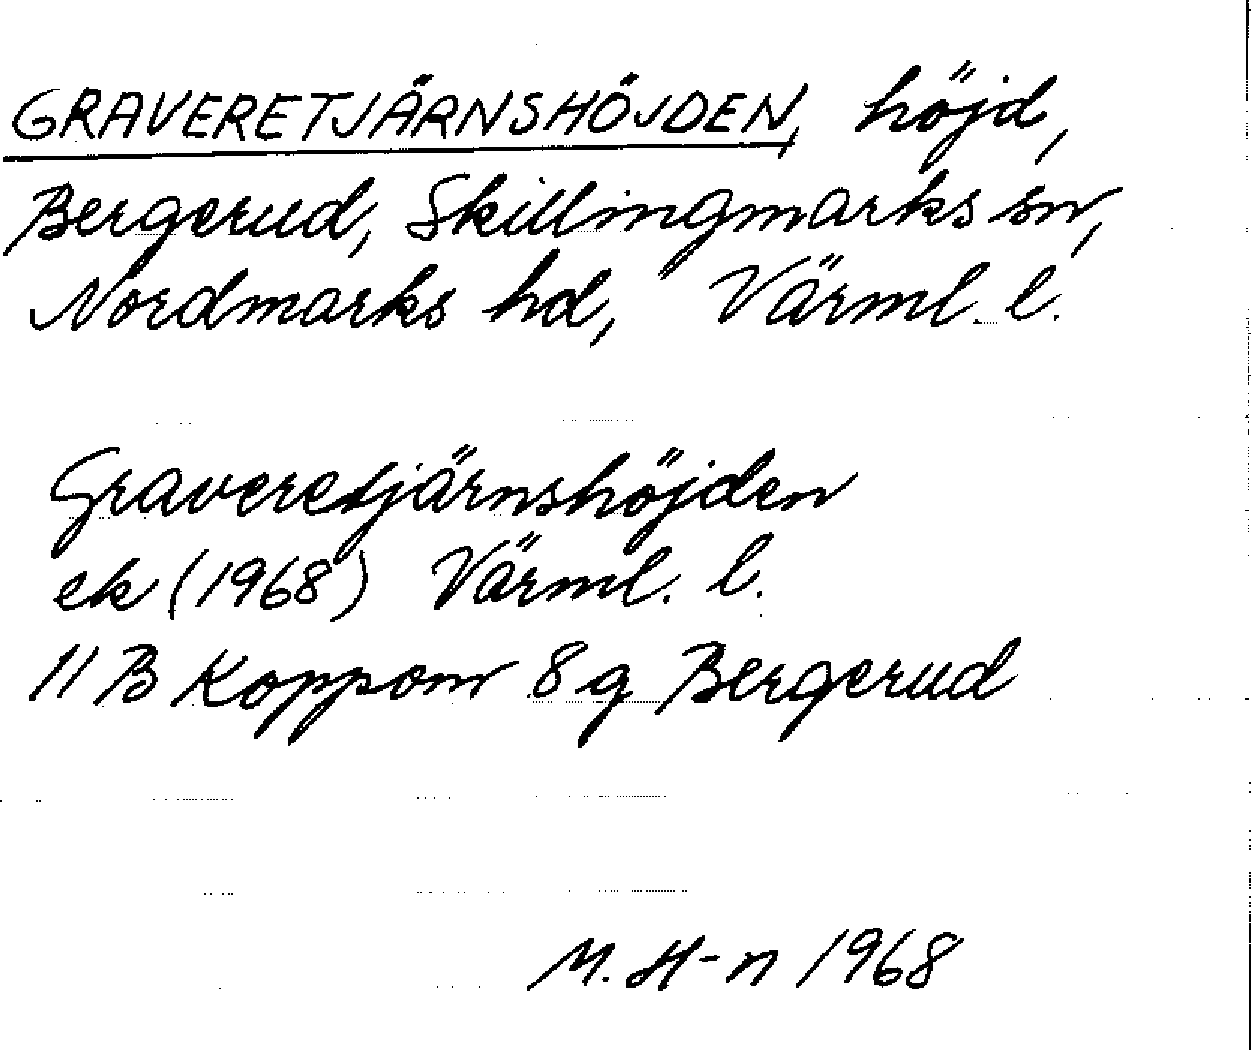 GRAVERETJÄRNSHÖJDEN, höjd,
Bergerud, Skillingmarks sn,
Nordmarks hd, Värml. l.
Graveretjärnshöjden
ek (1968) Värml. l.
11 B Koppom 8 g Bergerud
M. H-n 1968